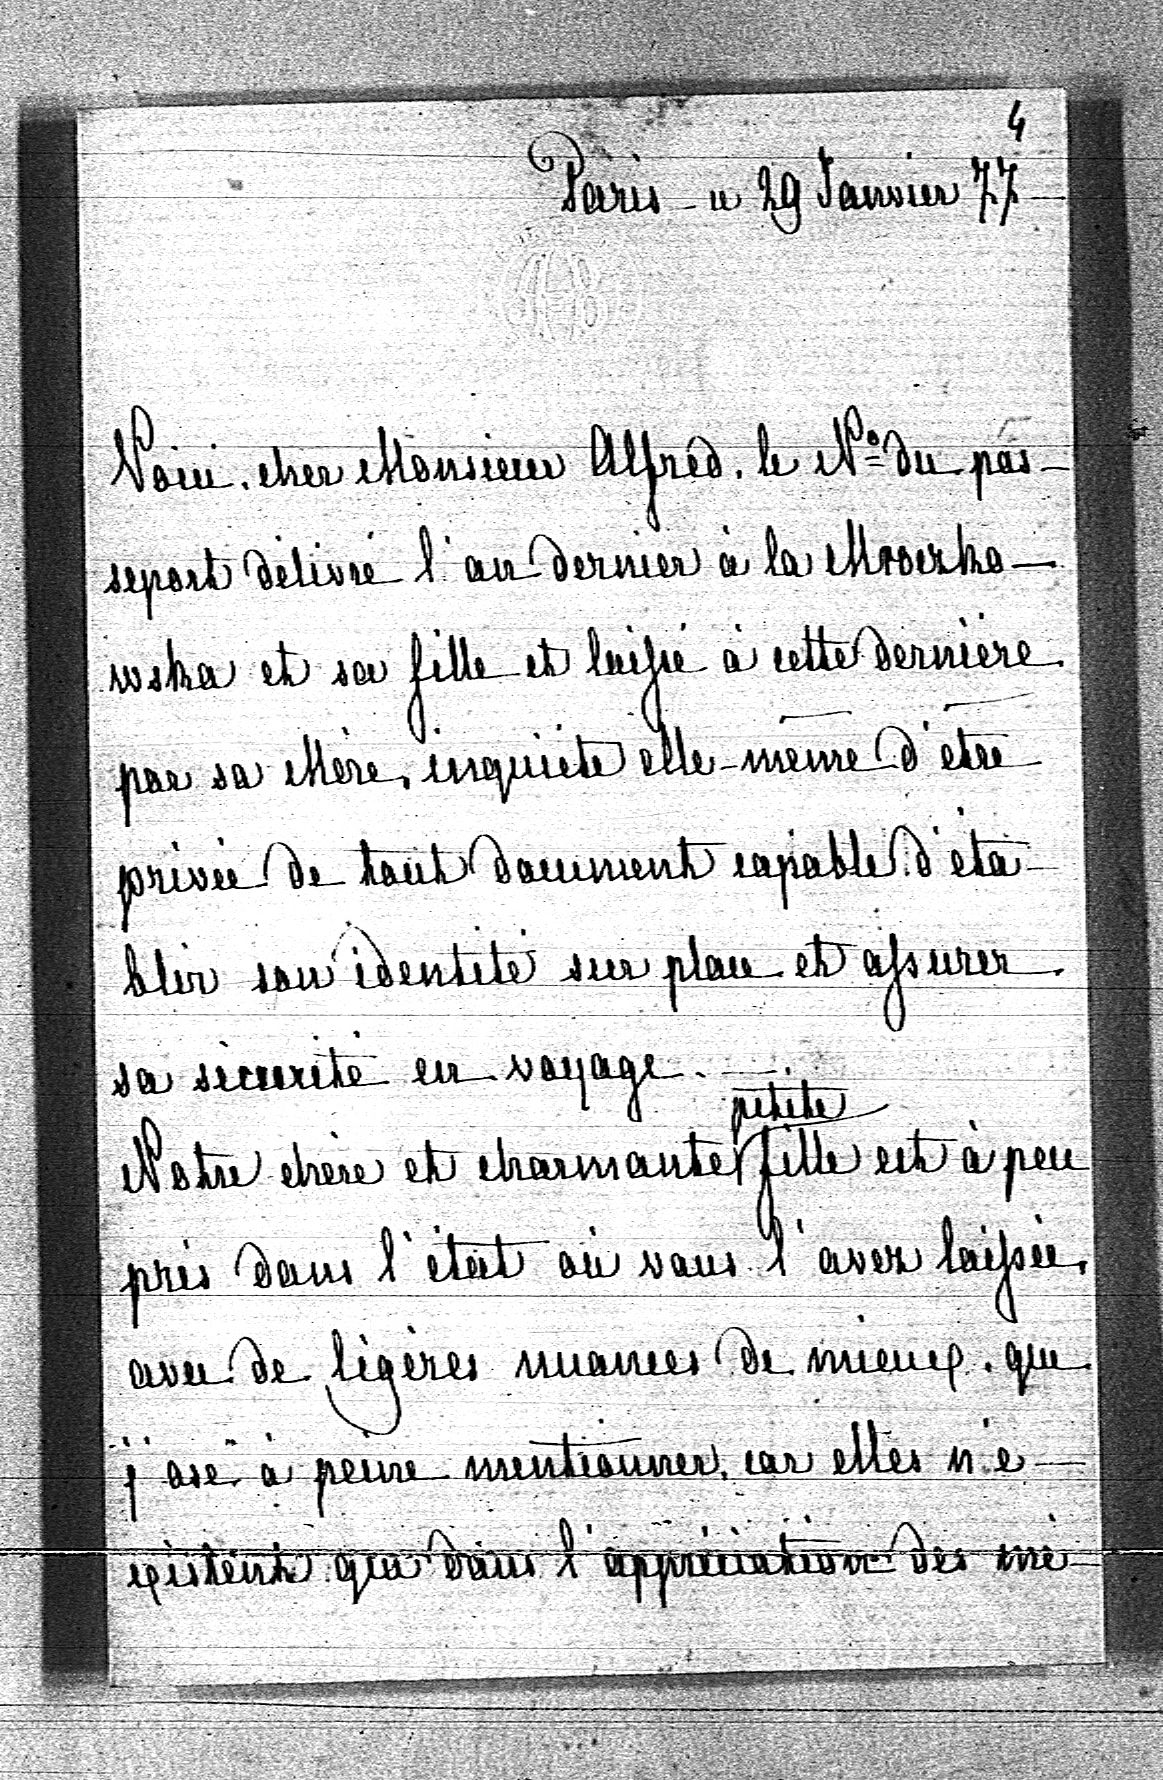 4
Paris - ce 29 Janvier 77 -
Voici, cher Monsieur Alfred, le Nº du pas-
seport délivré l'an dernier à la Mroczko-
wska et sa fille et laissé à cette dernière
par sa Mère, inquiète elle-même d'être
privée de tout document capable d'éta-
blir son identité sur place et assurer
sa sécurité en voyage. -
petite
Notre chère et charmante fille est à peu
près dans l'état où vous l'avez laissée,
avec de légères nuances de mieux, que
j'ose à peine mentionner, car elles n'e-
xistent que dans l'appréciation des mé-